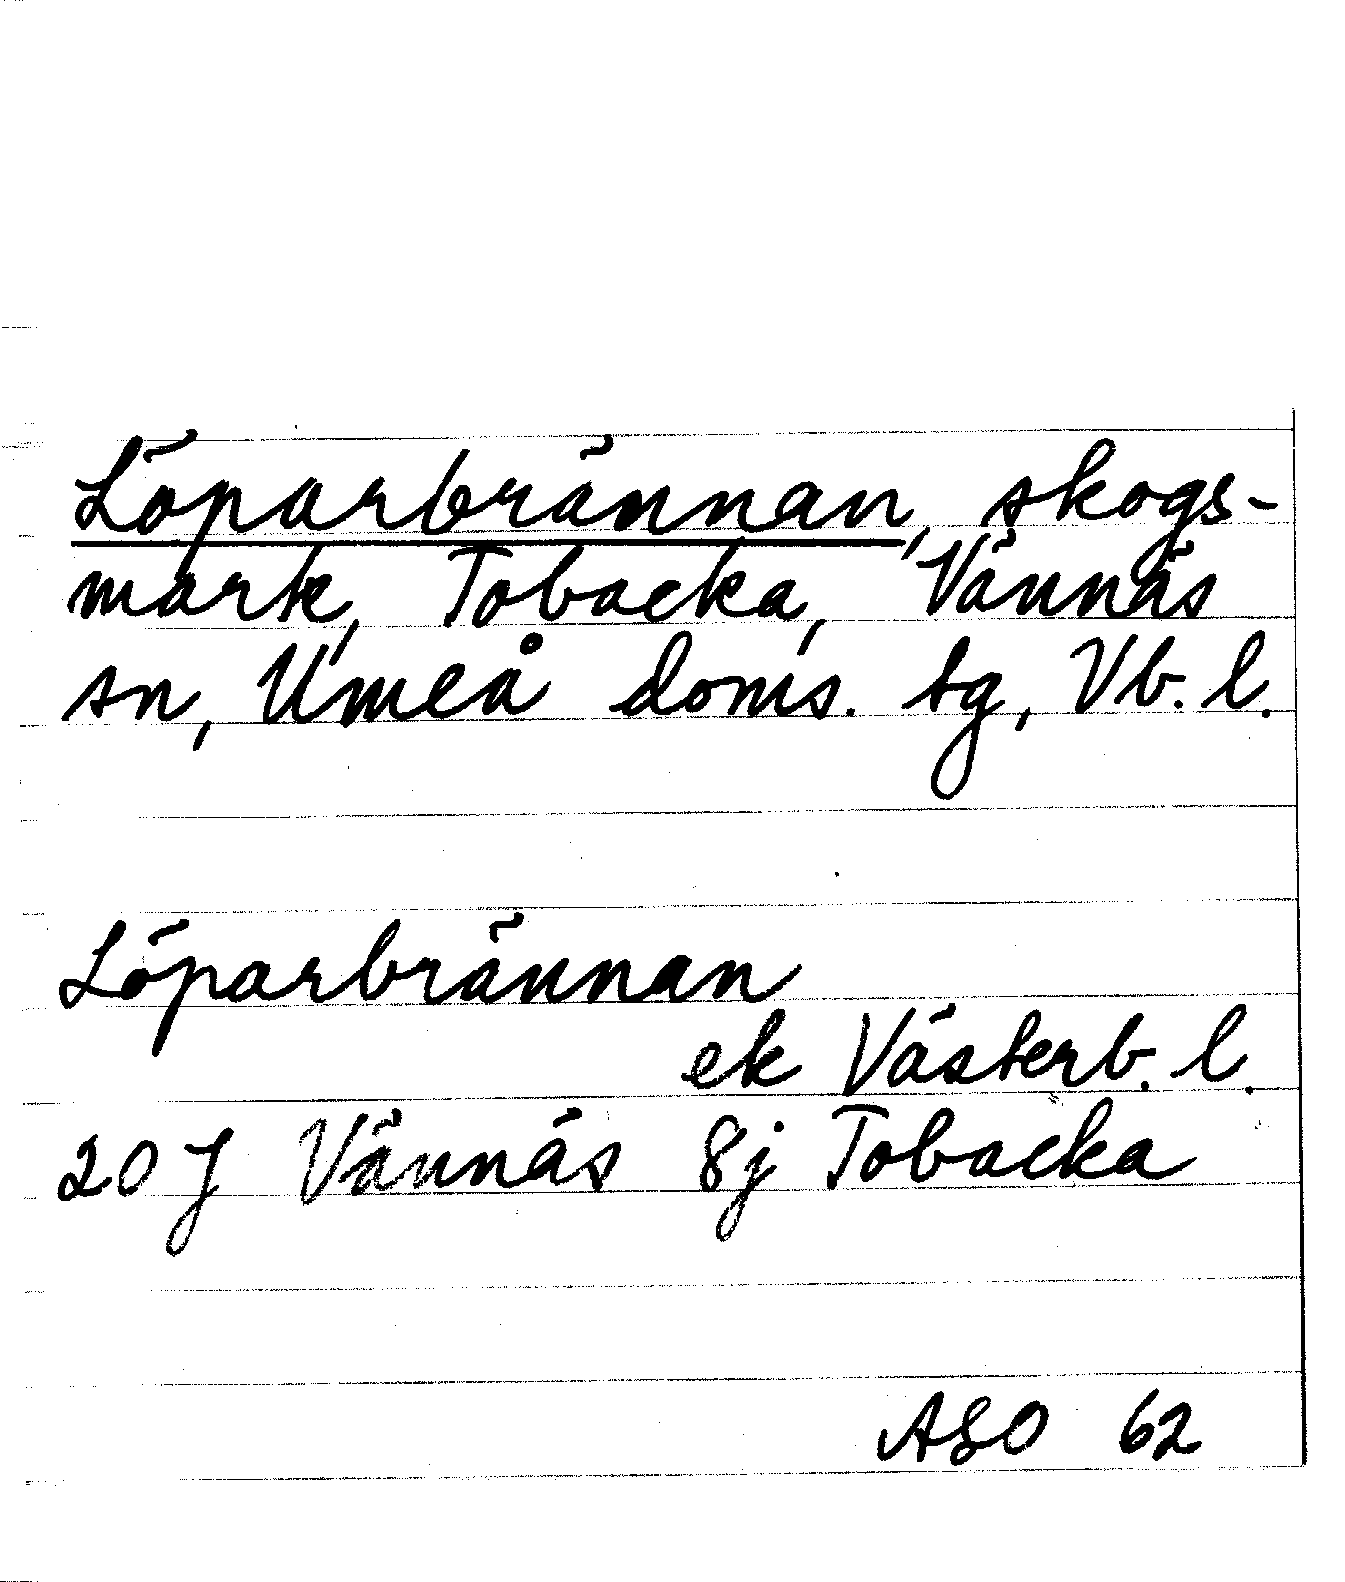 Löparbrännan, skogs-
mark, Tobacka, Vännäs
sn, Umeå doms. tg, Vb. l.
Löparbrännan
ek Västerb. l.
20 J Vännäs 8j Tobacka
ASO 62